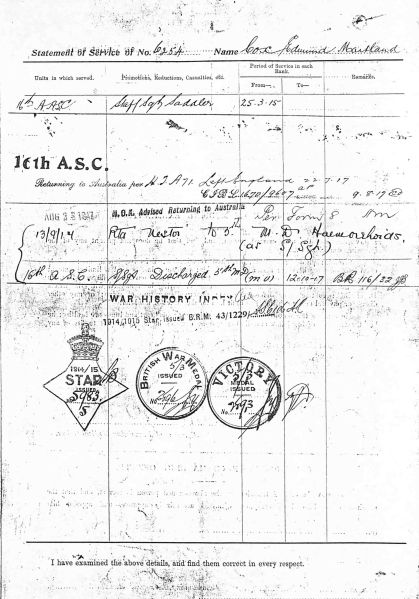 Statement of Service of No. 6254 Name Cox Edmund Maitland
Units in which served. Promotions, Reductions, Casualties, etc. Period of Service in each Rank. Remarks.
From— To—
16th A ASC Staff Sgt Saddler 25-3-15
16th A.S.C.
Returning to Australia per H.T. A71. Left England 22-7-17
9.8.17
M.O.R. Advised Returning to Australia Per Form 8
13/9/17 Rta Nestor to 5th M.D. Haemorrhoids.
(as S/Sgt.)
16th A.S.C. S/Sgt Discharged 5th M.D (m u) 12-10-17 BR 116/32
WAR HISTORY INDEX
1914/1915 Star issued B.R.M. 43/1229
1914/15
STAR
ISSUED
BRITISH WAR MEDAL
5/3
ISSUED
No.
VICTORY
MEDAL
ISSUED
No.
I have examined the above details, and find them correct in every respect.